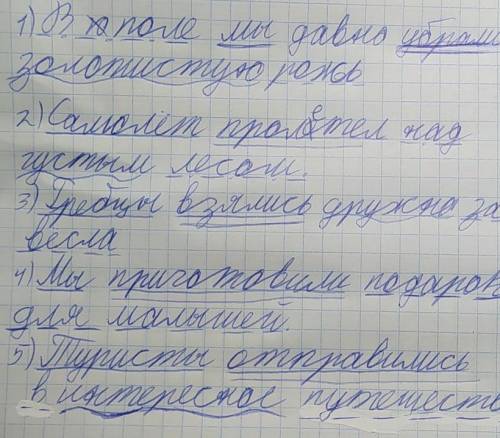 1) В поле мы давно убрали
золотистую рожь
2) Самолёт пролетел над
густым лесом.
3) Гребцы взялись дружно за
весла
4) Мы приготовили подарок
для малышей.
5) Туристы отправились
в интересное путешеств